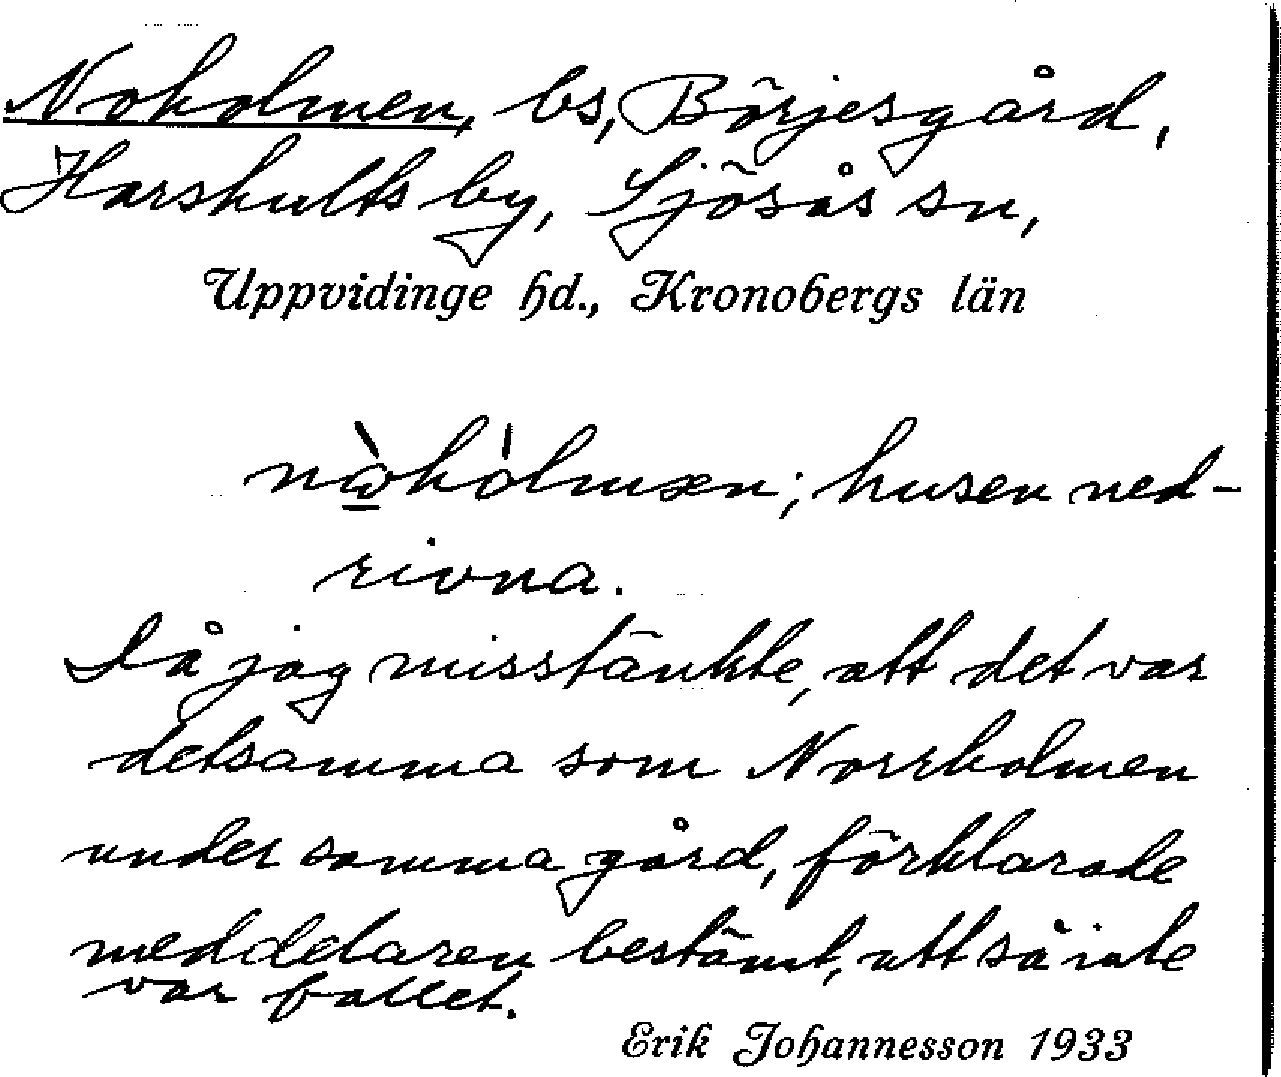 Nokolmen, bs, Börjesgård,
Harskults by, Sjösås sn,
Uppvidinge hd., Kronobergs län
nὼkòlmæn; husen ned-
rivna.
Då jag misstänkte, att det var
detsamma som Norrholmen
under samma gård, förklarade
meddelaren bestämt, att så inte
var fallet.
Erik Johannesson 1933